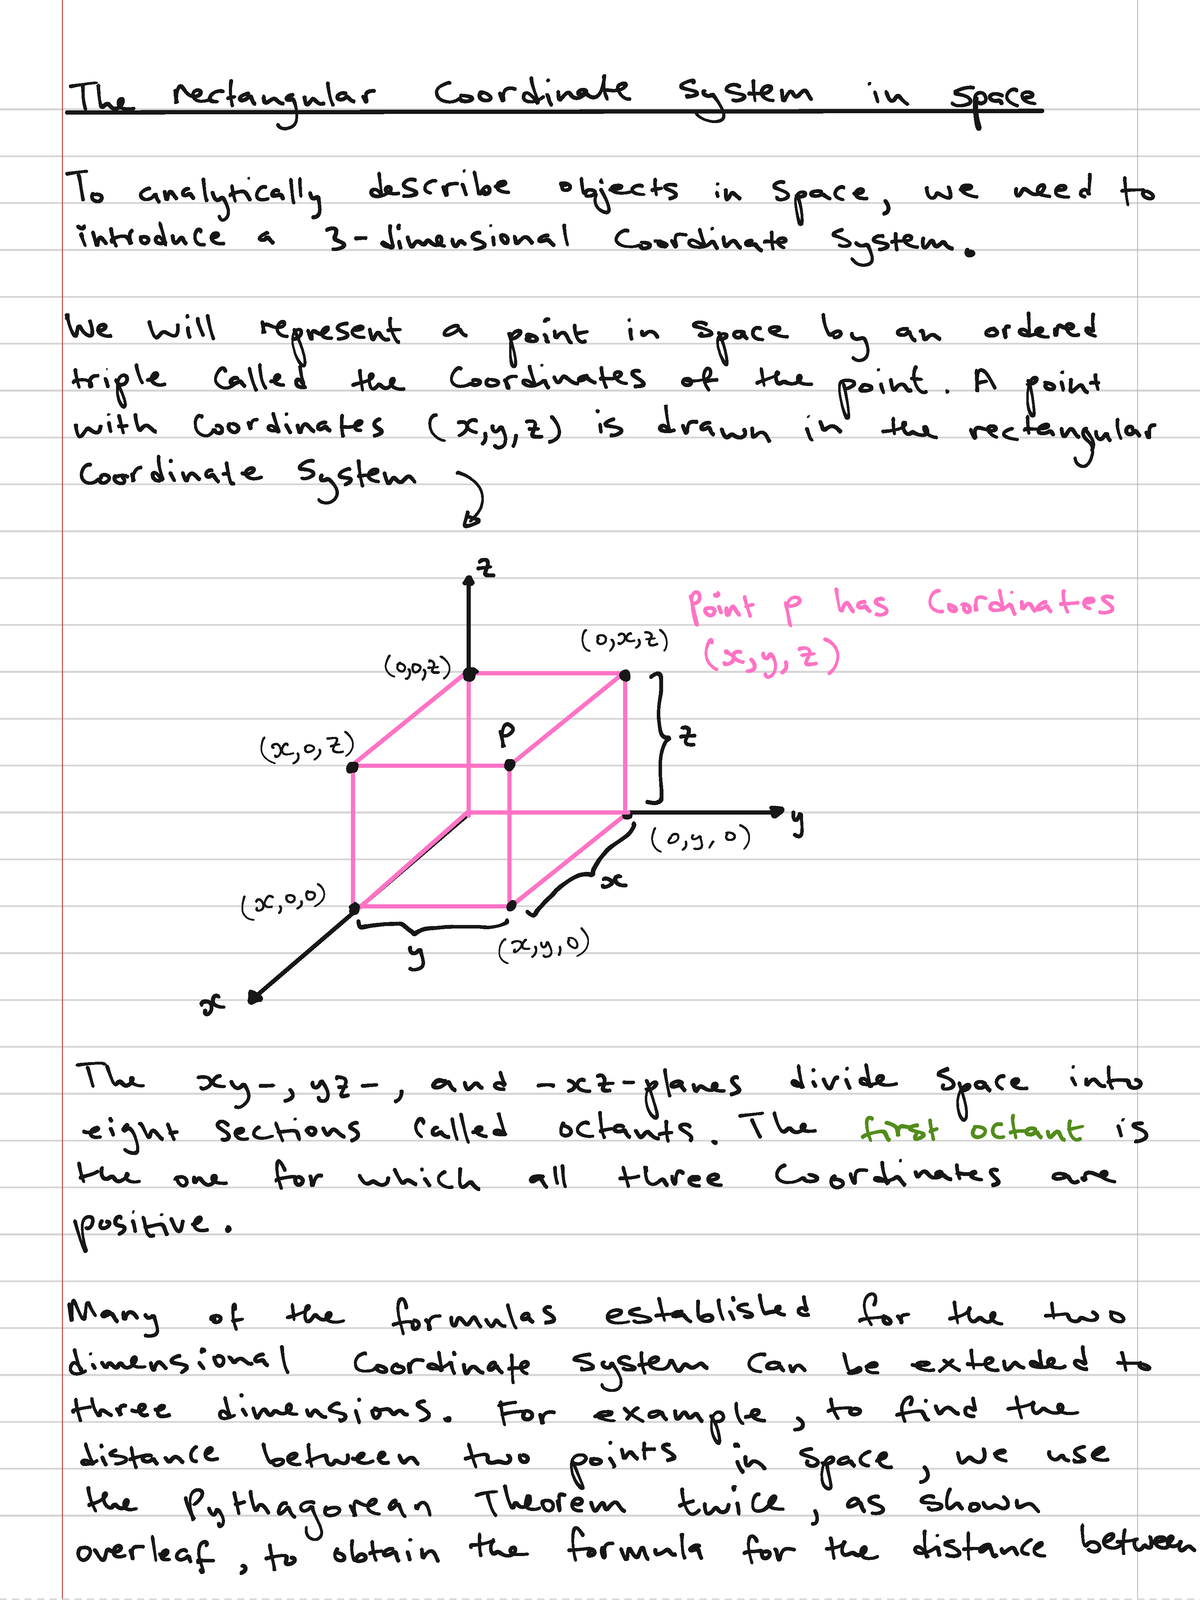 The rectangular Coordinate System in space
To analytically describe objects in space, we need to
introduce a 3-dimensional Coordinate System.
We will represent a point in space by an ordered
triple called the Coordinates of the point. A point
with Coordinates (x,y,z) is drawn in the rectangular
Coordinate System
z
Point P has Coordinates
(x,y,z)
(0,x,z)
(0,0,z)
P
z
(x,0,z)
y
(0,y,0)
x
(x,0,0)
y
(x,y,0)
x
The xy-, yz-, and -xz-planes divide space into
eight sections called octants. The first octant is
the one for which all three Coordinates are
positive.
Many of the formulas established for the two
dimensional Coordinate System can be extended to
three dimensions. For example, to find the
distance between two points in space, we use
the Pythagorean Theorem twice, as shown
overleaf, to obtain the formula for the distance between